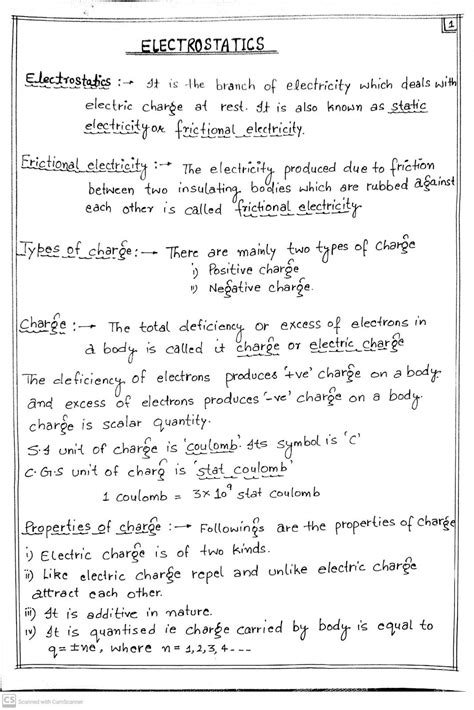 1
ELECTROSTATICS
Electrostatics :→ It is the branch of electricity which deals with
electric charge at rest. It is also known as static
electricity or frictional electricity.
Frictional electricity :→ The electricity produced due to friction
between two insulating bodies which are rubbed against
each other is called frictional electricity
Types of charge :→ There are mainly two types of charge
i) Positive charge
ii) Negative charge.
Charge :→ The total deficiency or excess of electrons in
a body is called it charge or electric charge
The deficiency of electrons produces '+ve' charge on a body
and excess of electrons produces '-ve' charge on a body.
charge is scalar quantity.
S.I unit of charge is 'coulomb'. Its symbol is 'C'
C.G.S unit of charg is 'stat coulomb'
1 coulomb = 3×10⁹ stat coulomb
Properties of charge :→ Followings are the properties of charge
i) Electric charge is of two kinds.
ii) Like electric charge repel and unlike electric charge
attract each other.
iii) It is additive in nature.
iv) It is quantised ie charge carried by body is equal to
q = ±ne, where n = 1,2,3,4---
CS Scanned with CamScanner